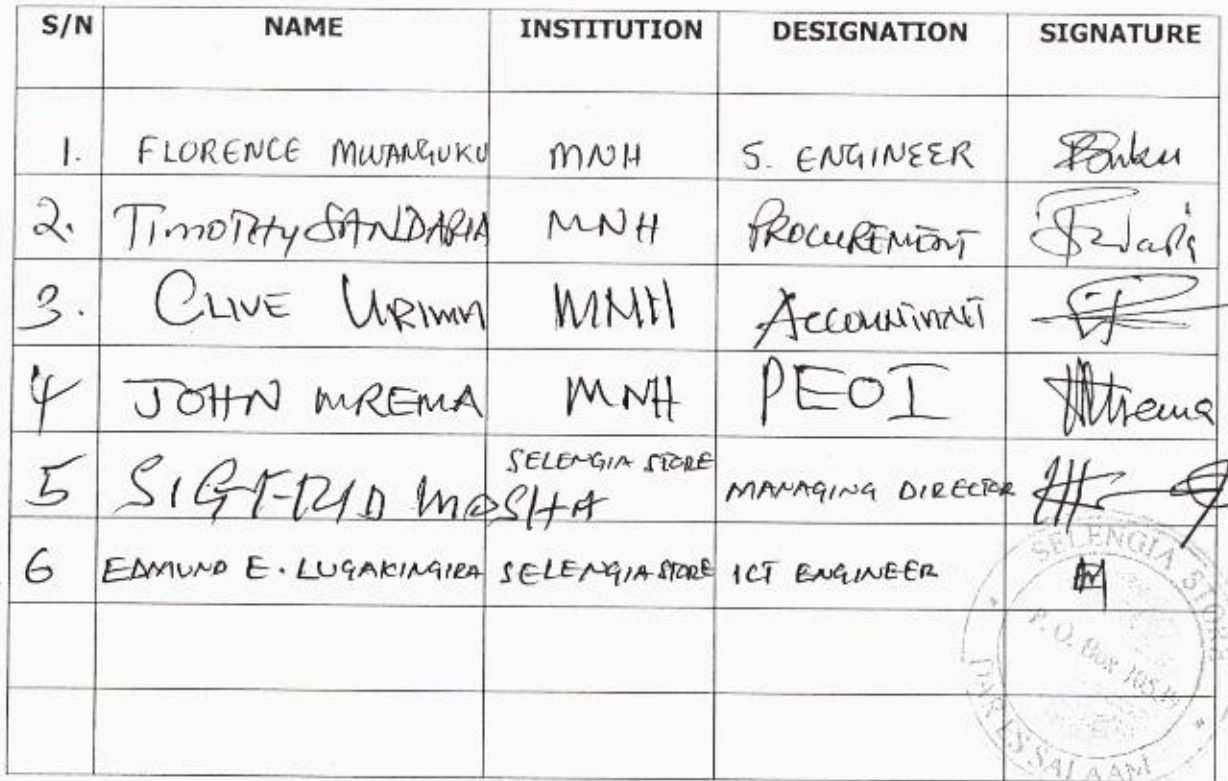 S/N NAME INSTITUTION DESIGNATION SIGNATURE
1. FLORENCE MWANGUKU MNH S. ENGINEER
2. TIMOTHY SANDARIA MNH PROCUREMENT
3. CLIVE MNH ACCOUNTANT
4 JOHN MREMA MNH PEOI Mrema
5 SIGFRID MOSHA SELENGIA STORE MANAGING DIRECTOR
6 EDMUND E. LUGAKINGIRA SELENGIA STORE ICT ENGINEER
SELENGIA STORE
P. O. Box
DAR ES SALAAM